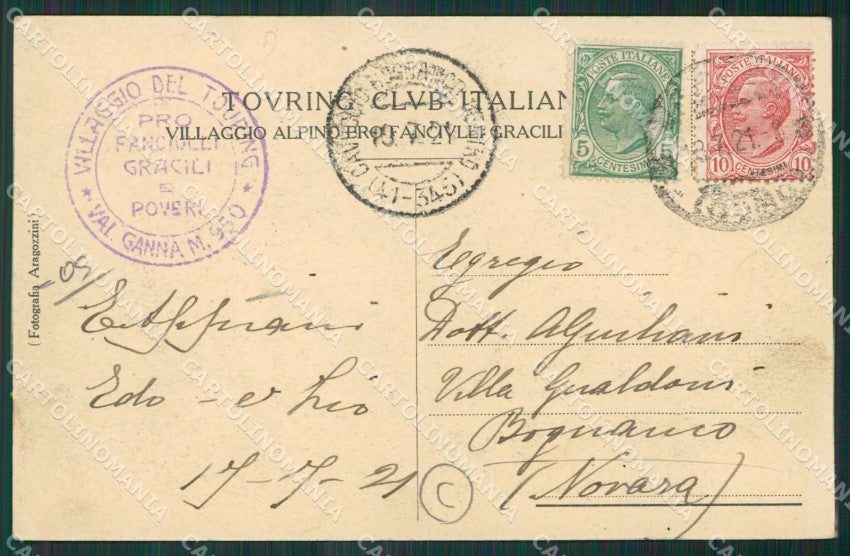 TOVRING CLVB ITALIAN
VILLAGGIO ALPINO PRO FANCIVLLI GRACILI
VILLAGGIO DEL TOURING
PRO
FANCIULLI
GRACILI
E
POVERI
VAL GANNA M. 550
(41-343)
POSTE ITALIANE
5 CENTESIMI 5
POSTE ITALIANE
10 CENTESIMI 10
(Fotografia Aragozzini)
Egregio
Dott. A Giuliani
Villa Gualdoni
Bognanco
(Novara)
Edo - e Lio
17-7-21
C
CARTOLINOMANIA